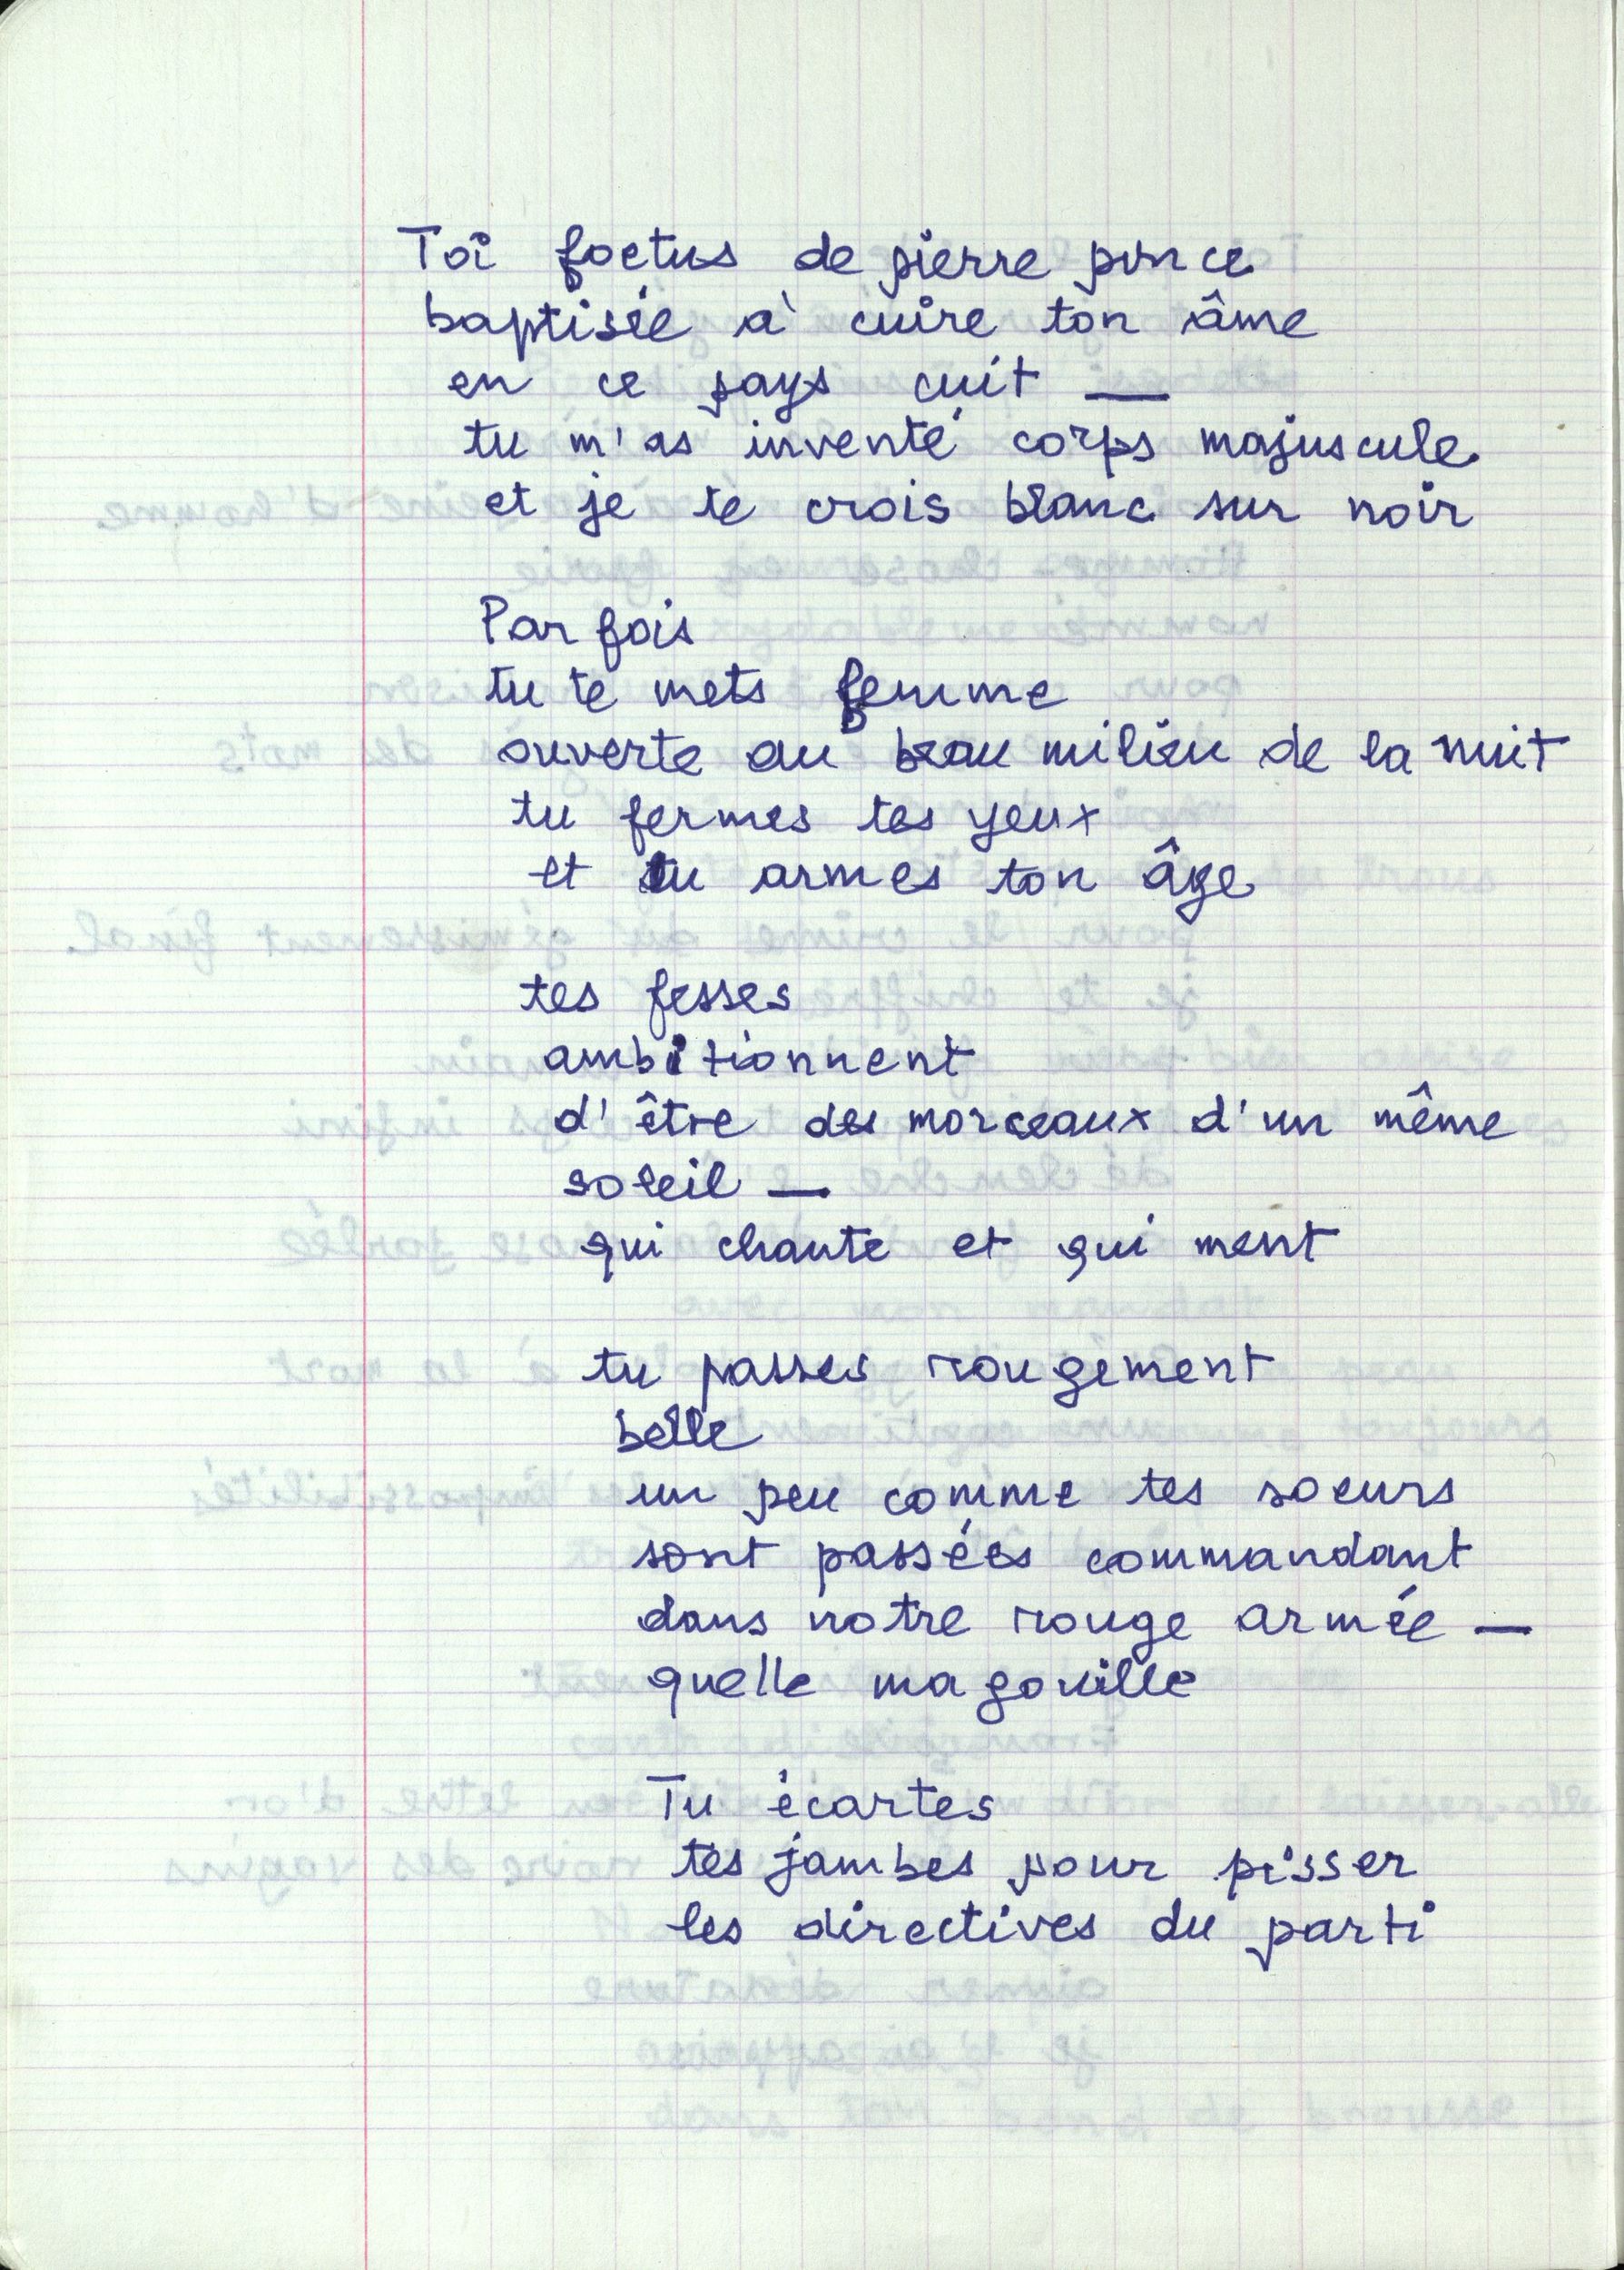 Toi foetus de pierre ponce
baptisée à cuire ton âme
en ce pays cuit —
tu m'as inventé corps majuscule
et je te crois blanc sur noir
Parfois
tu te mets femme
ouverte au beau milieu de la nuit
tu fermes tes yeux
et tu armes ton âge
tes fesses
ambitionnent
d'être des morceaux d'un même
soleil —
qui chante et qui ment
tu passes rougement
belle
un peu comme tes soeurs
sont passées commandant
dans notre rouge armée —
quelle magouille
Tu écartes
tes jambes pour pisser
les directives du parti